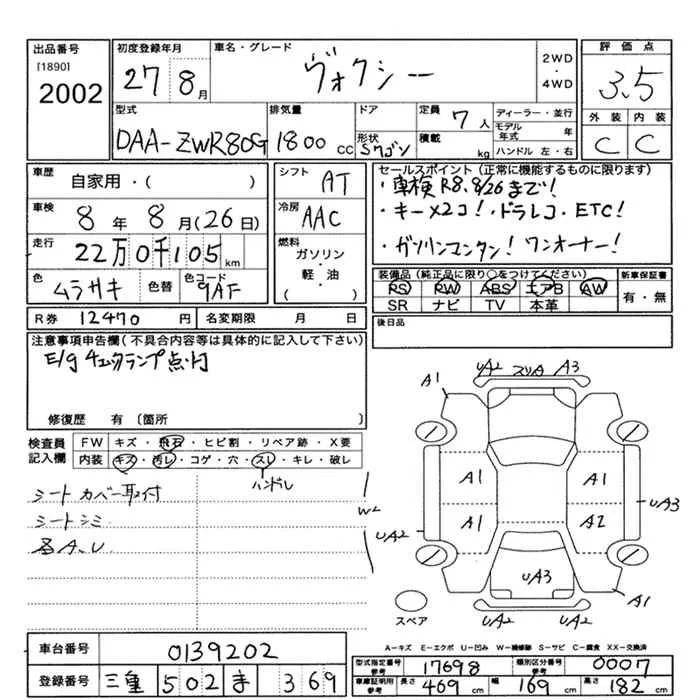 出品番号
[1890]
2002
初度登録年月
27 8月
車名・グレード
ヴォクシー
2WD
・
4WD
評価点
3.5
外装 内装
C C
型式
DAA-ZWR80G
排気量
1800 CC
ドア
形状
5ワゴン
定員 7人
積載 kg
ディーラー・並行
モデル年式 年
ハンドル 左・右
車歴
自家用・( )
車検
8年8月(26日)
走行
22万0千105km
色
ムラサキ
色替
色コード
9AF
シフト
AT
冷房
AAC
燃料
ガソリン
・
軽・油
( )
セールスポイント(正常に機能するものに限ります)
・車検R8.8/26まで!
・キー×2コ!・ドラレコ・ETC!
・ガソリンマンタン!ワンオーナー!
装備品(純正品に限り○をつけてください)
PS PW ABS エアB AW
SR ナビ TV 本革
新車保証書
有・無
後日品
R券 12470円
名変期限 月 日
注意事項申告欄(不具合内容等は具体的に記入して下さい)
E/gチェックランプ点灯
修復歴 有〔箇所 〕
検査員
記入欄
FW キズ・飛石・ヒビ割・リペア跡・X要
内装 キズ・汚レ・コゲ・穴・スレ・キレ・破レ
ハンドル
シートカバー取付
シートシミ
各A.U
W2
UA2 スリA A3
A1
A1 A1
UA3
A1 A2
UA2
UA3
A1
UA2 UA2
スペア
A-キズ E-エクボ U-凹み W-補修跡 S-サビ C-腐食 XX-交換済
車台番号
0139202
登録番号
三重 502 ま 369
型式指定番号
参考
17698
類別区分番号
参考
0007
車庫証明用
参考
長さ 469cm 幅 169cm 高さ 182cm